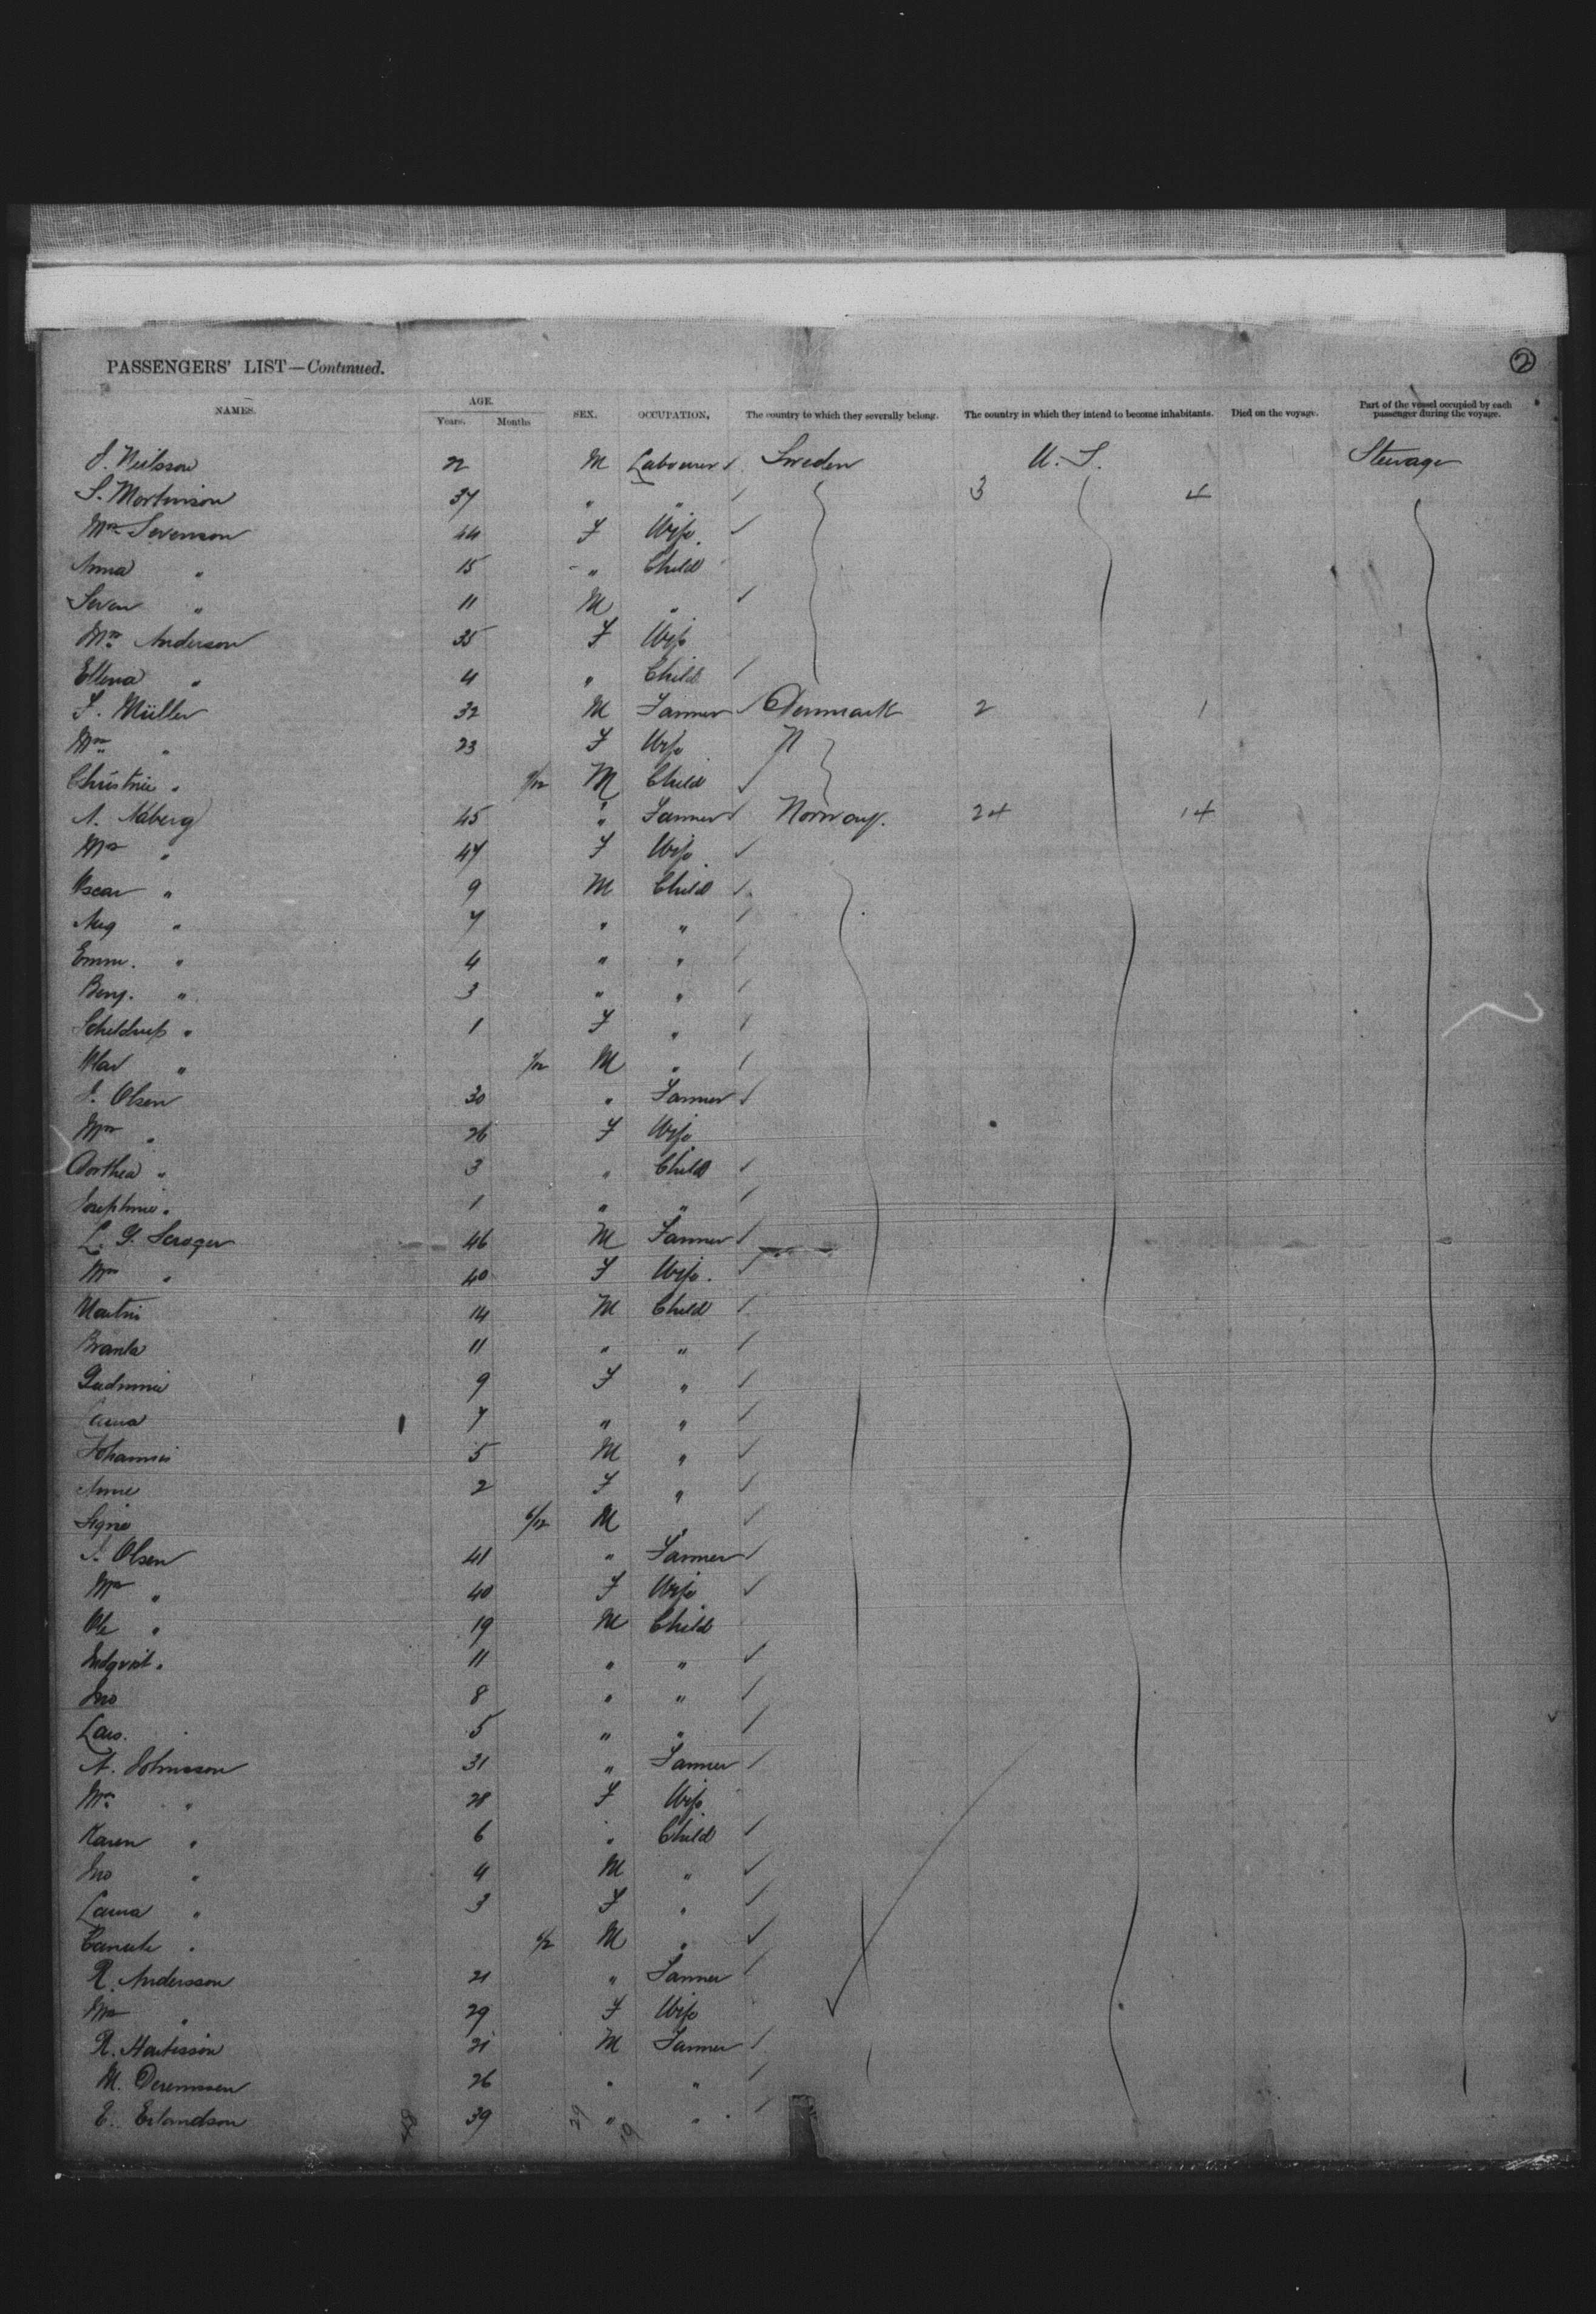 PASSENGERS' LIST—Continued. 2
NAMES. AGE. Years. Months SEX. OCCUPATION, The country to which they severally belong. The country in which they intend to become inhabitants. Died on the voyage. Part of the vessel occupied by each passenger during the voyage.
J. Neilsson 22 M Labourer Sweden U.S. Steerage
S. Mortinson 37 " " 3 4
Mrs Svenson 44 F Wife
Anna " 15 " Child
Seven " 11 M "
Mrs Anderson 35 F Wife
Ellena " 4 " Child
F. Müller 32 M Farmer Denmark 2 1
Mrs " 23 F Wife
Christine " M Child
A. Naberg 45 " Farmer Norway. 24 14
Mrs " 47 F Wife
Oscar " 9 M Child
Aug " 7 " "
Emm. " 4 " "
Benj. " 3 " "
Scheldrup " 1 F "
Olav " M "
J. Olsen 30 " Farmer
Mrs " 26 F Wife
Dorthea " 3 " Child
Josephine " 1 " "
L. G. 46 M Farmer
Mrs " 40 F Wife.
Martin 14 M Child
11 " "
9 F "
Laura 7 " "
Johannes 5 M "
Anne 2 F "
Signe 6/12 M "
Olsen 41 " Farmer
Mrs " 40 F Wife
Ole " 19 M Child
" 11 " "
Jno 8 " "
Lars. 5 " "
A. Johnsson 31 " Farmer
Mrs " 28 F Wife
Karen " 6 " Child
Jno " 4 M "
Laura " 3 F "
" M "
R. Andersson 21 " Farmer
Mrs " 29 F Wife
R. 21 M Farmer
M. 26 " "
E. Erlandson 39 " "
29 19